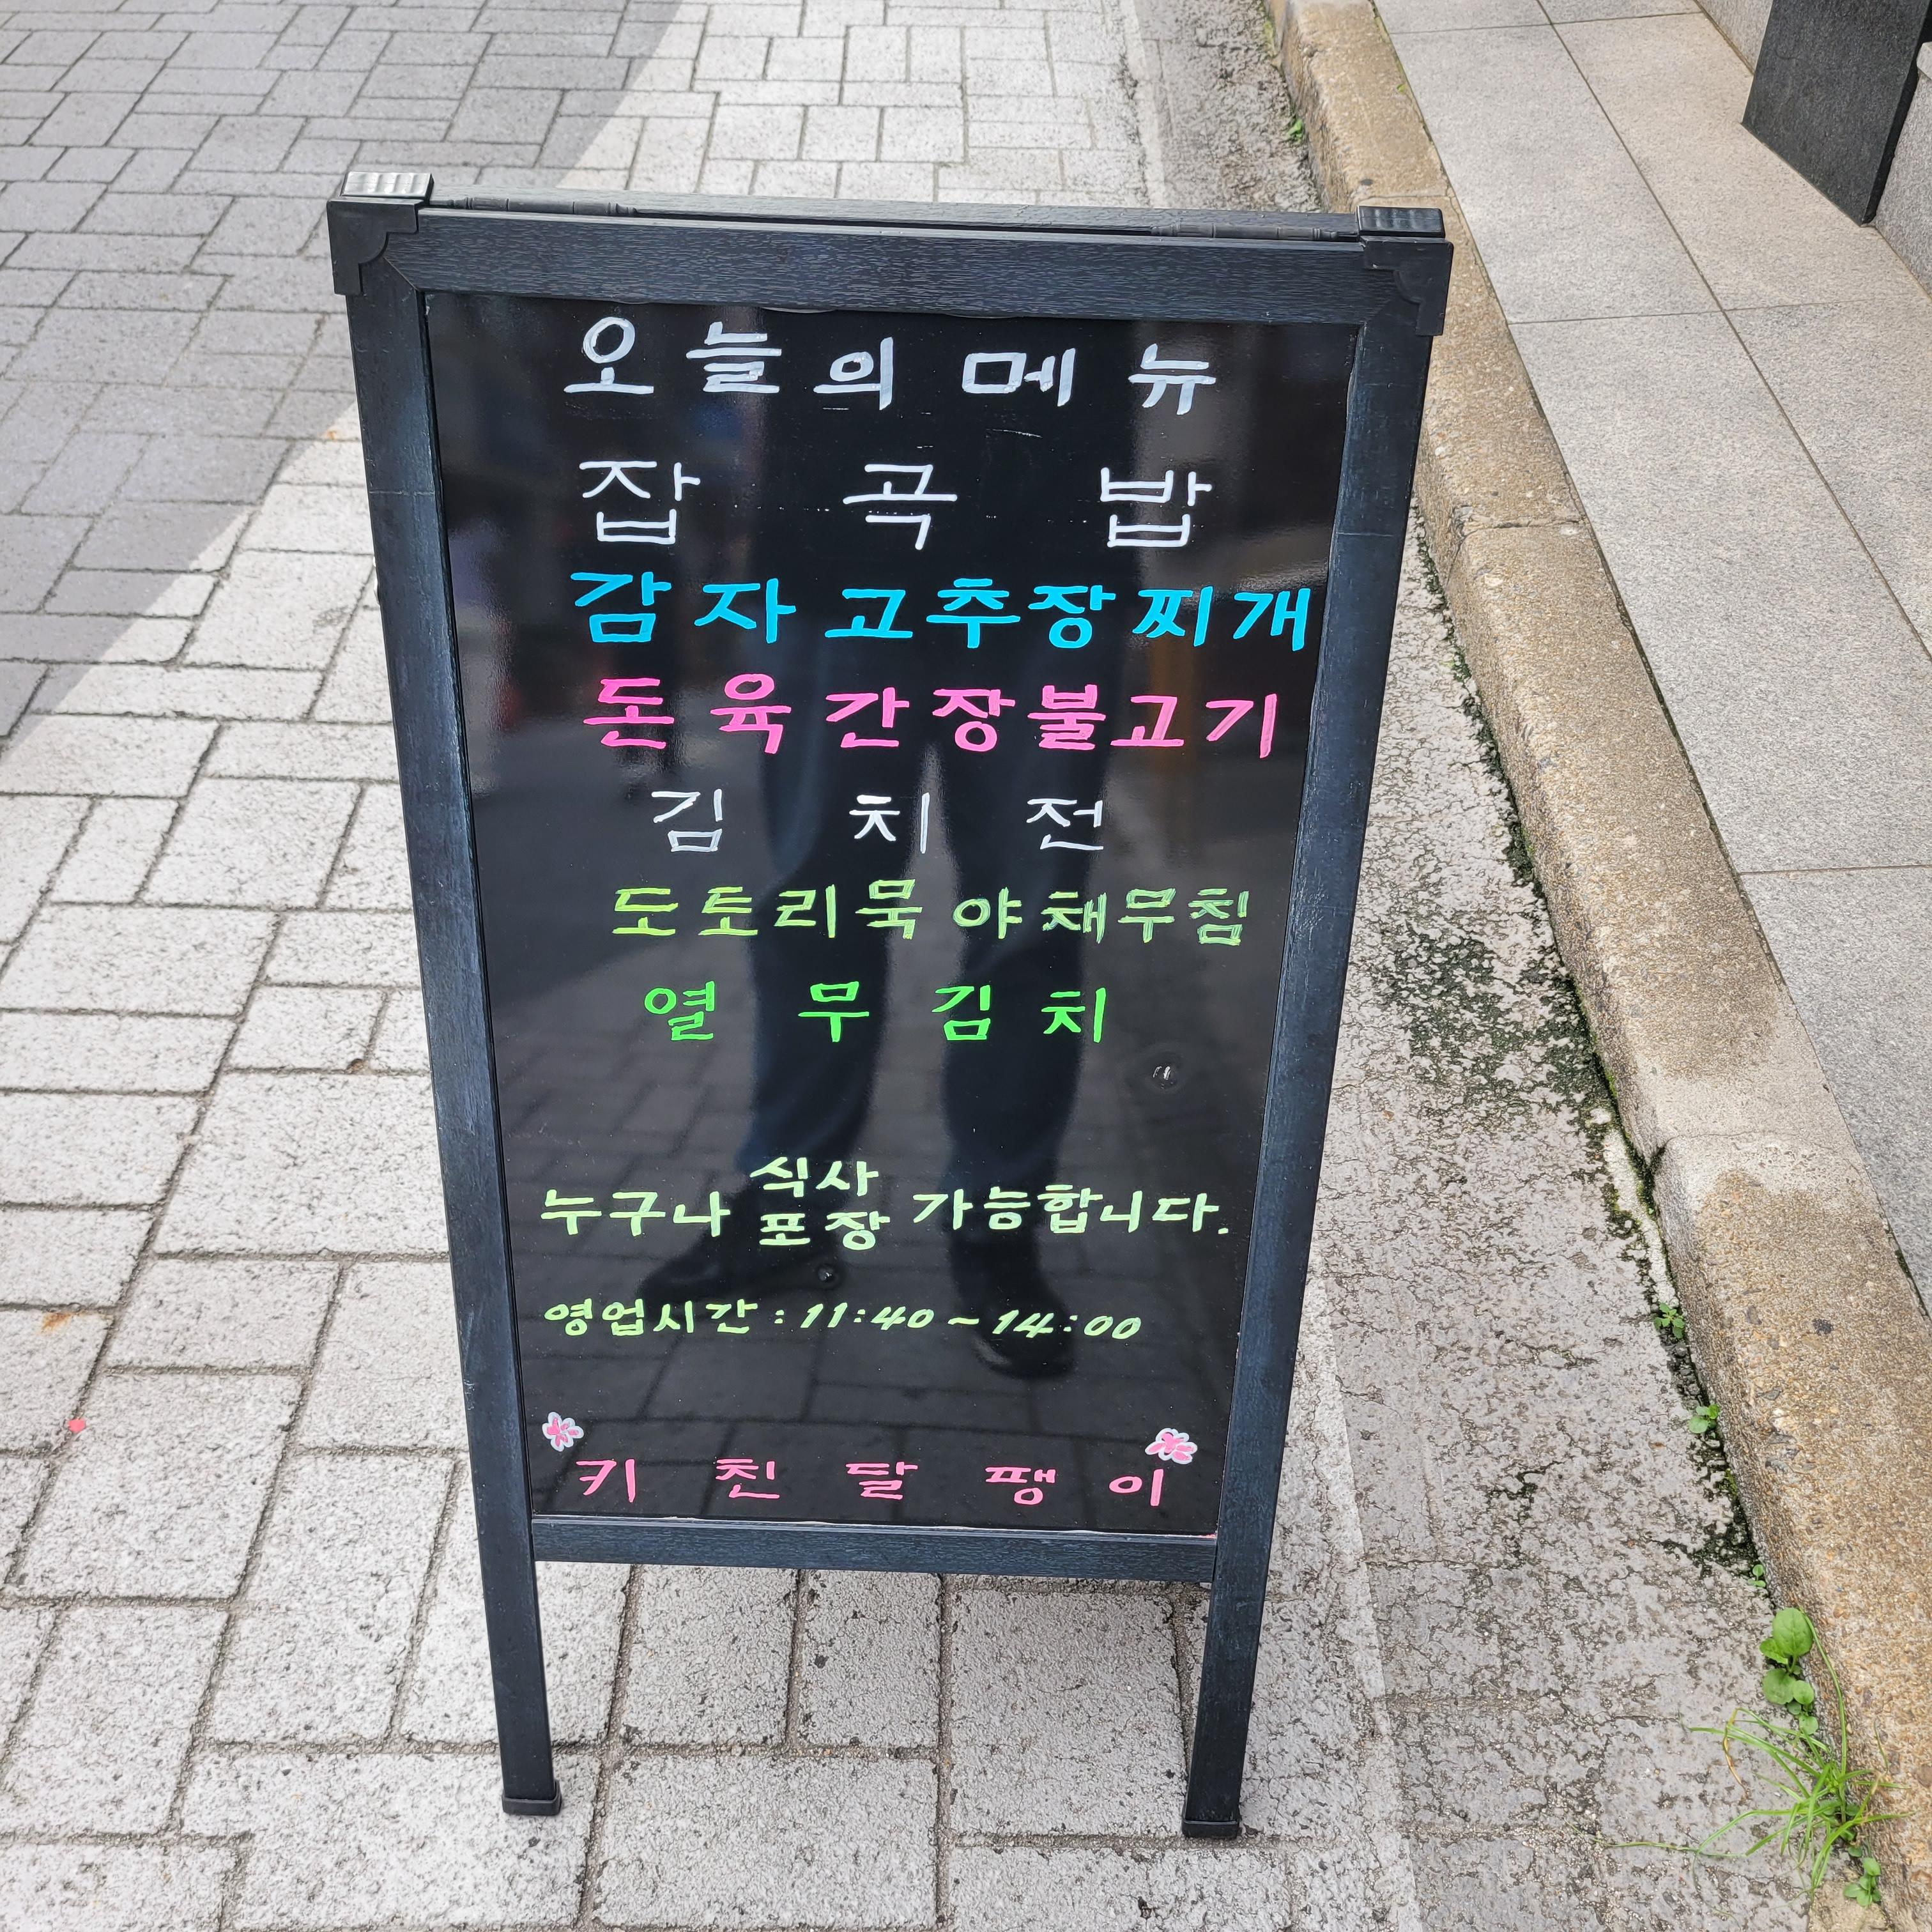 오늘의 메뉴
잡곡밥
감자 고추장찌개
돈육간장불고기
김치전
도토리묵 야채무침
열무김치
누구나 식사 포장 가능합니다.
영업시간 : 11:40 ~ 14:00
키친달팽이